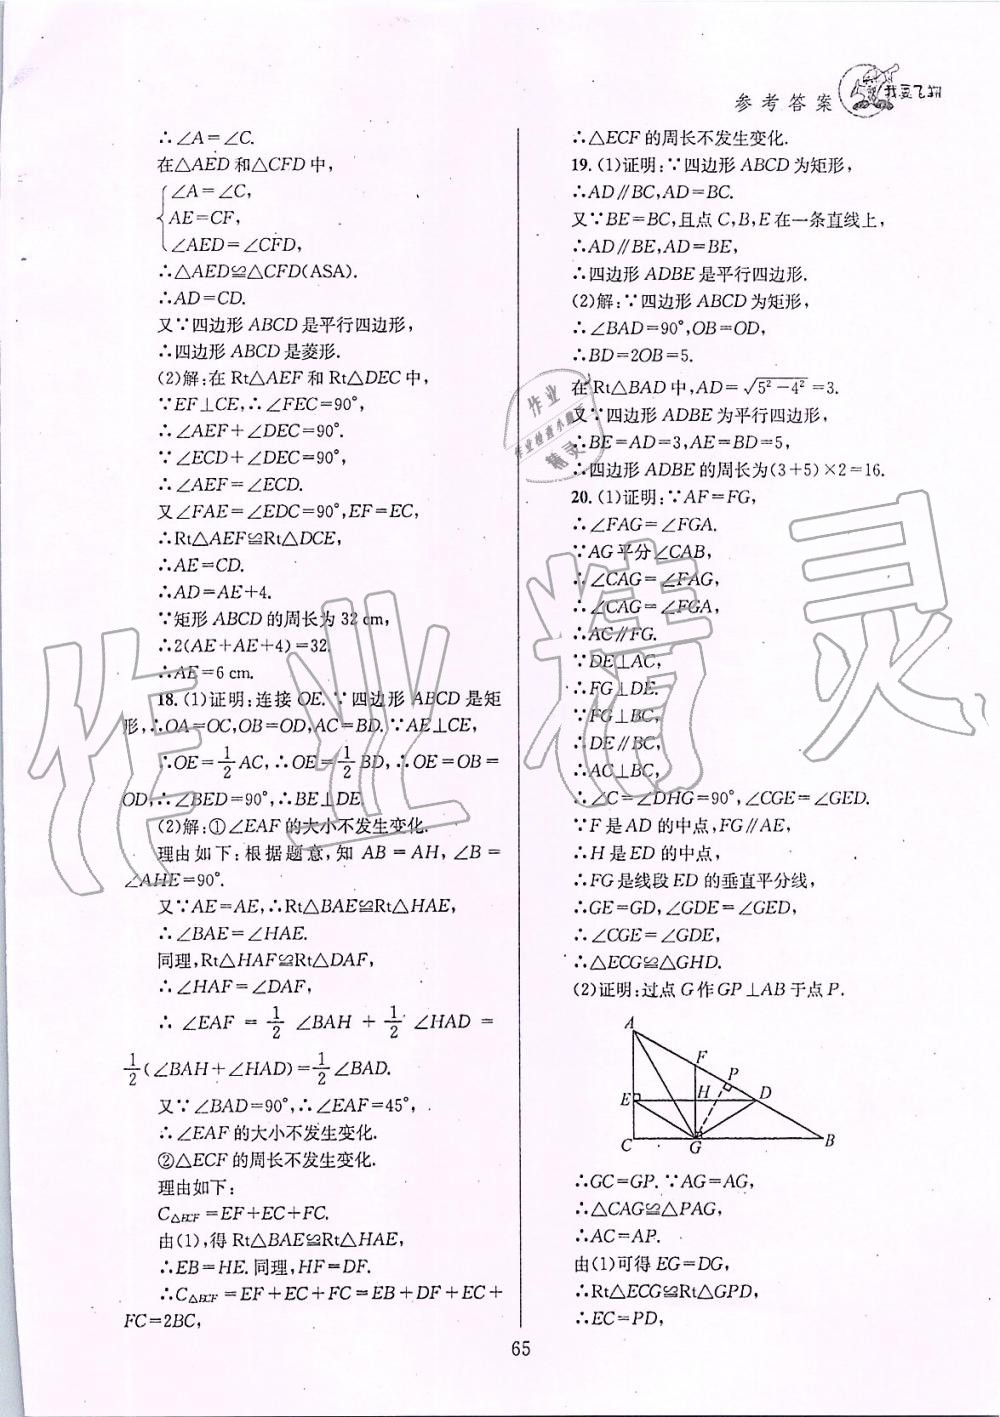 参考答案
我要飞翔
∴∠A=∠C.
在△AED和△CFD中,
∠A=∠C,
AE=CF,
∠AED=∠CFD,
∴△AED≌△CFD(ASA).
∴AD=CD.
又∵四边形ABCD是平行四边形,
∴四边形ABCD是菱形.
(2)解:在Rt△AEF和Rt△DEC中,
∵EF⊥CE,∴∠FEC=90°,
∴∠AEF+∠DEC=90°.
∵∠ECD+∠DEC=90°,
∴∠AEF=∠ECD.
又∠FAE=∠EDC=90°,EF=EC,
∴Rt△AEF≌Rt△DCE,
∴AE=CD.
∴AD=AE+4.
∵矩形ABCD的周长为32 cm,
∴2(AE+AE+4)=32.
∴AE=6 cm.
18.(1)证明:连接OE.∵四边形ABCD是矩
形,∴OA=OC,OB=OD,AC=BD.∵AE⊥CE,
∴OE=1/2 AC,∴OE=1/2 BD,∴OE=OB=
OD,∴∠BED=90°,∴BE⊥DE.
(2)解:①∠EAF的大小不发生变化.
理由如下:根据题意,知AB=AH,∠B=
∠AHE=90°.
又∵AE=AE,∴Rt△BAE≌Rt△HAE,
∴∠BAE=∠HAE.
同理,Rt△HAF≌Rt△DAF,
∴∠HAF=∠DAF,
∴∠EAF=1/2∠BAH+1/2∠HAD=
1/2(∠BAH+∠HAD)=1/2∠BAD.
又∵∠BAD=90°,∴∠EAF=45°,
∴∠EAF的大小不发生变化.
②△ECF的周长不发生变化.
理由如下:
C△ECF=EF+EC+FC.
由(1),得Rt△BAE≌Rt△HAE,
∴EB=HE.同理,HF=DF.
∴C△ECF=EF+EC+FC=EB+DF+EC+
FC=2BC,
∴△ECF的周长不发生变化.
19.(1)证明:∵四边形ABCD为矩形,
∴AD∥BC,AD=BC.
又∵BE=BC,且点C,B,E在一条直线上,
∴AD∥BE,AD=BE,
∴四边形ADBE是平行四边形.
(2)解:∵四边形ABCD为矩形,
∴∠BAD=90°,OB=OD,
∴BD=2OB=5.
在Rt△BAD中,AD=√(5²-4²)=3.
又∵四边形ADBE为平行四边形,
∴BE=AD=3,AE=BD=5,
∴四边形ADBE的周长为(3+5)×2=16.
20.(1)证明:∵AF=FG,
∴∠FAG=∠FGA.
∵AG平分∠CAB,
∴∠CAG=∠FAG,
∴∠CAG=∠FGA,
∴AC∥FG.
∵DE⊥AC,
∴FG⊥DE.
∵FG⊥BC,
∴DE∥BC,
∴AC⊥BC,
∴∠C=∠DHG=90°,∠CGE=∠GED.
∵F是AD的中点,FG∥AE,
∴H是ED的中点,
∴FG是线段ED的垂直平分线,
∴GE=GD,∠GDE=∠GED,
∴∠CGE=∠GDE,
∴△ECG≌△GHD.
(2)证明:过点G作GP⊥AB于点P.
A
F
P
E H D
C G B
∴GC=GP.∵AG=AG,
∴△CAG≌△PAG,
∴AC=AP.
由(1)可得EG=DG,
∴Rt△ECG≌Rt△GPD,
∴EC=PD,
65
作业
作业检查小超人
精灵
作业精灵